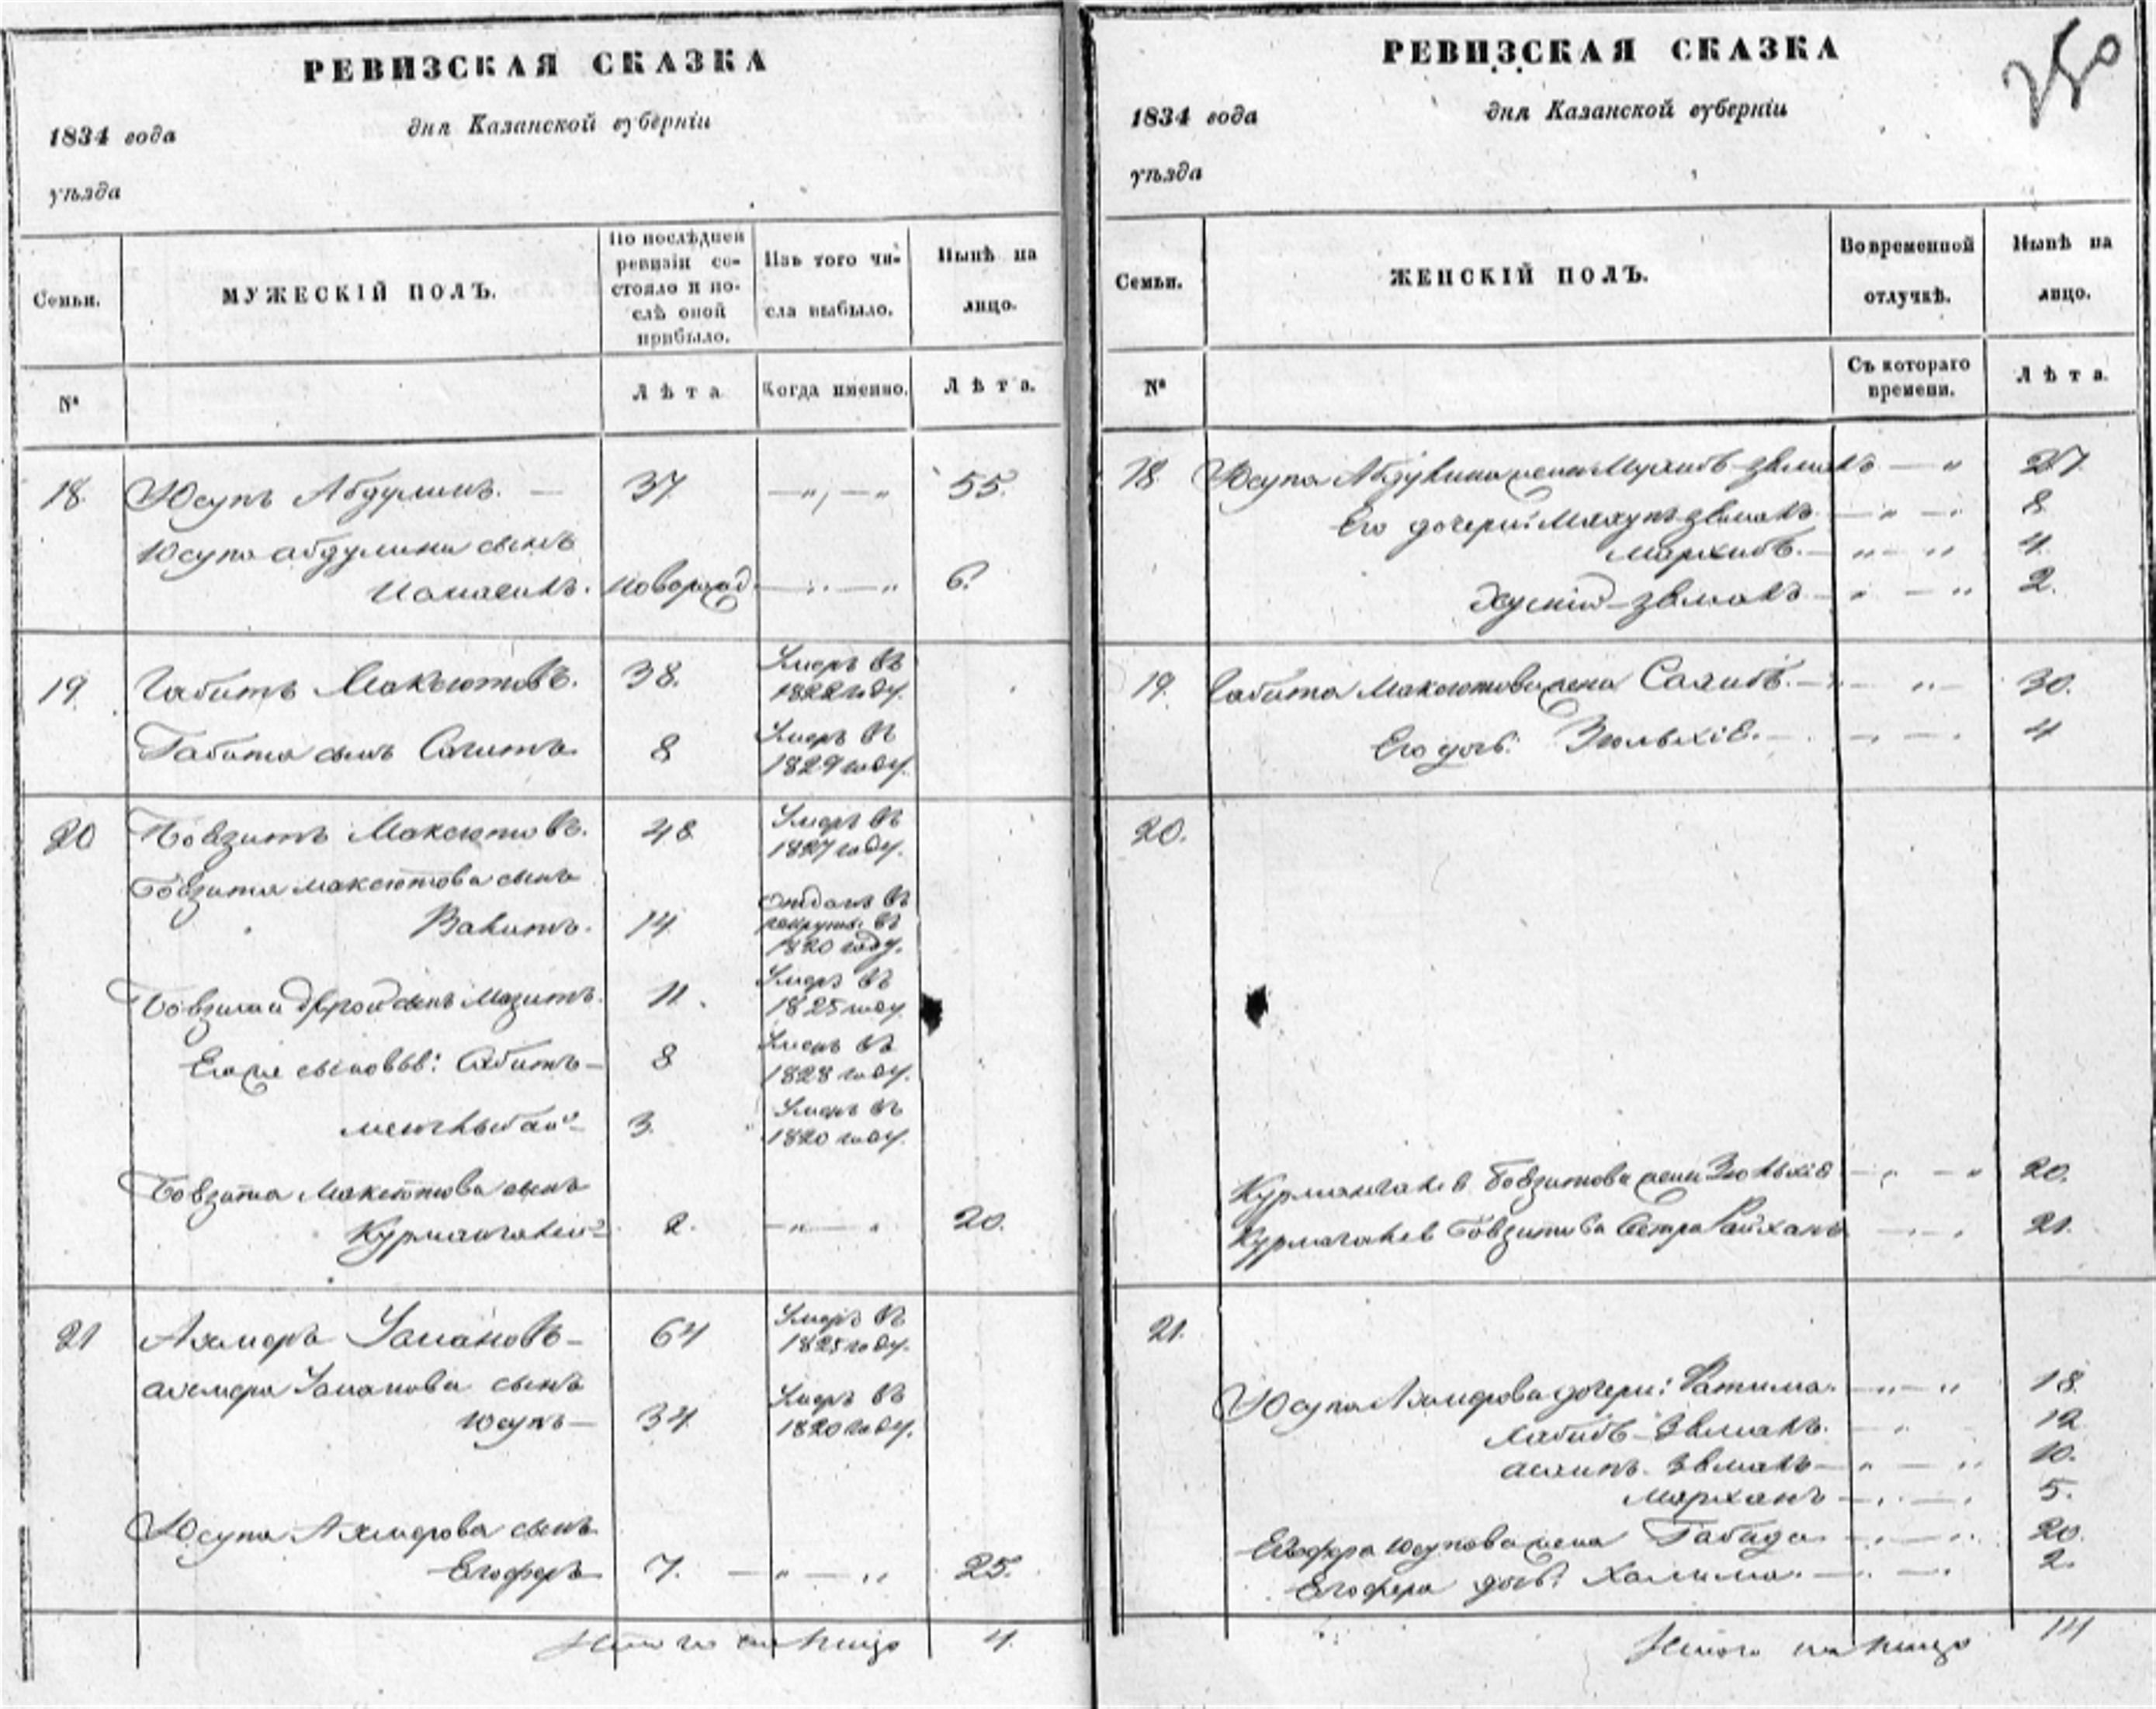 РЕВИЗСКАЯ СКАЗКА
1834 года дня Казанской губерніи
уѣзда
Семьи.
МУЖЕСКІЙ ПОЛЪ.
По послѣдней ревизіи состояло и послѣ оной прибыло.
Изъ того числа выбыло.
Нынѣ на лицо.
№
Лѣта
Когда именно.
Лѣта.
18. Юсупъ Абдулинъ. — 37 —„—„ 55.
Юсупа Абдулина сынъ
новорожд. —„—„ 6.
19. Габитъ Максютовъ. 38. Умеръ въ 1822 году.
Габита сынъ Сагитъ 8 Умеръ въ 1829 году.
20 Максютовъ. 48 Умеръ въ 1827 году.
Максютова сынъ
Вакитъ. 14. Отданъ въ рекруты въ 1820 году.
другой сынъ Мазитъ. 11. Умеръ въ 1825 году.
Его же сыновья: Сабитъ — 8 Умеръ въ 1828 году.
3. Умеръ въ 1820 году.
Максютова сынъ
Курмангалей 2. —„—„ 20.
21 Ахмеръ Усмановъ — 64 Умеръ въ 1825 году.
Ахмера Усманова сынъ
Юсупъ — 34 Умеръ въ 1820 году.
Юсупа Ахмерова сынъ
Егоферъ 7. —„—„ 25.
Итого на лицо 4.
250
РЕВИЗСКАЯ СКАЗКА
1834 года дня Казанской губерніи
уѣзда
Семьи.
ЖЕНСКІЙ ПОЛЪ.
Во временной отлучкѣ.
Нынѣ на лицо.
№
Съ котораго времени.
Лѣта.
18. Юсупа Абдулина жена — „ 27.
Его дочери: —„— 8
—„—„ 4.
—„—„ 2.
19. Габита Максютова жена Салибъ. —„— 30.
Его дочь: 4
20.
Курмангалея жена —„—„ 20.
Курмангалея сестра Райхана —„— 21.
21.
Юсупа Ахмерова дочери: Фатима. —„—„ 18.
Хабибъ-Звмалъ. —„ 12
Звмалъ —„—„ 10.
Марханъ —„—„ 5.
Егофера Юсупова жена Габида —„—„ 20.
Егофера дочь: Халима. —„— 2.
Итого на лицо 14